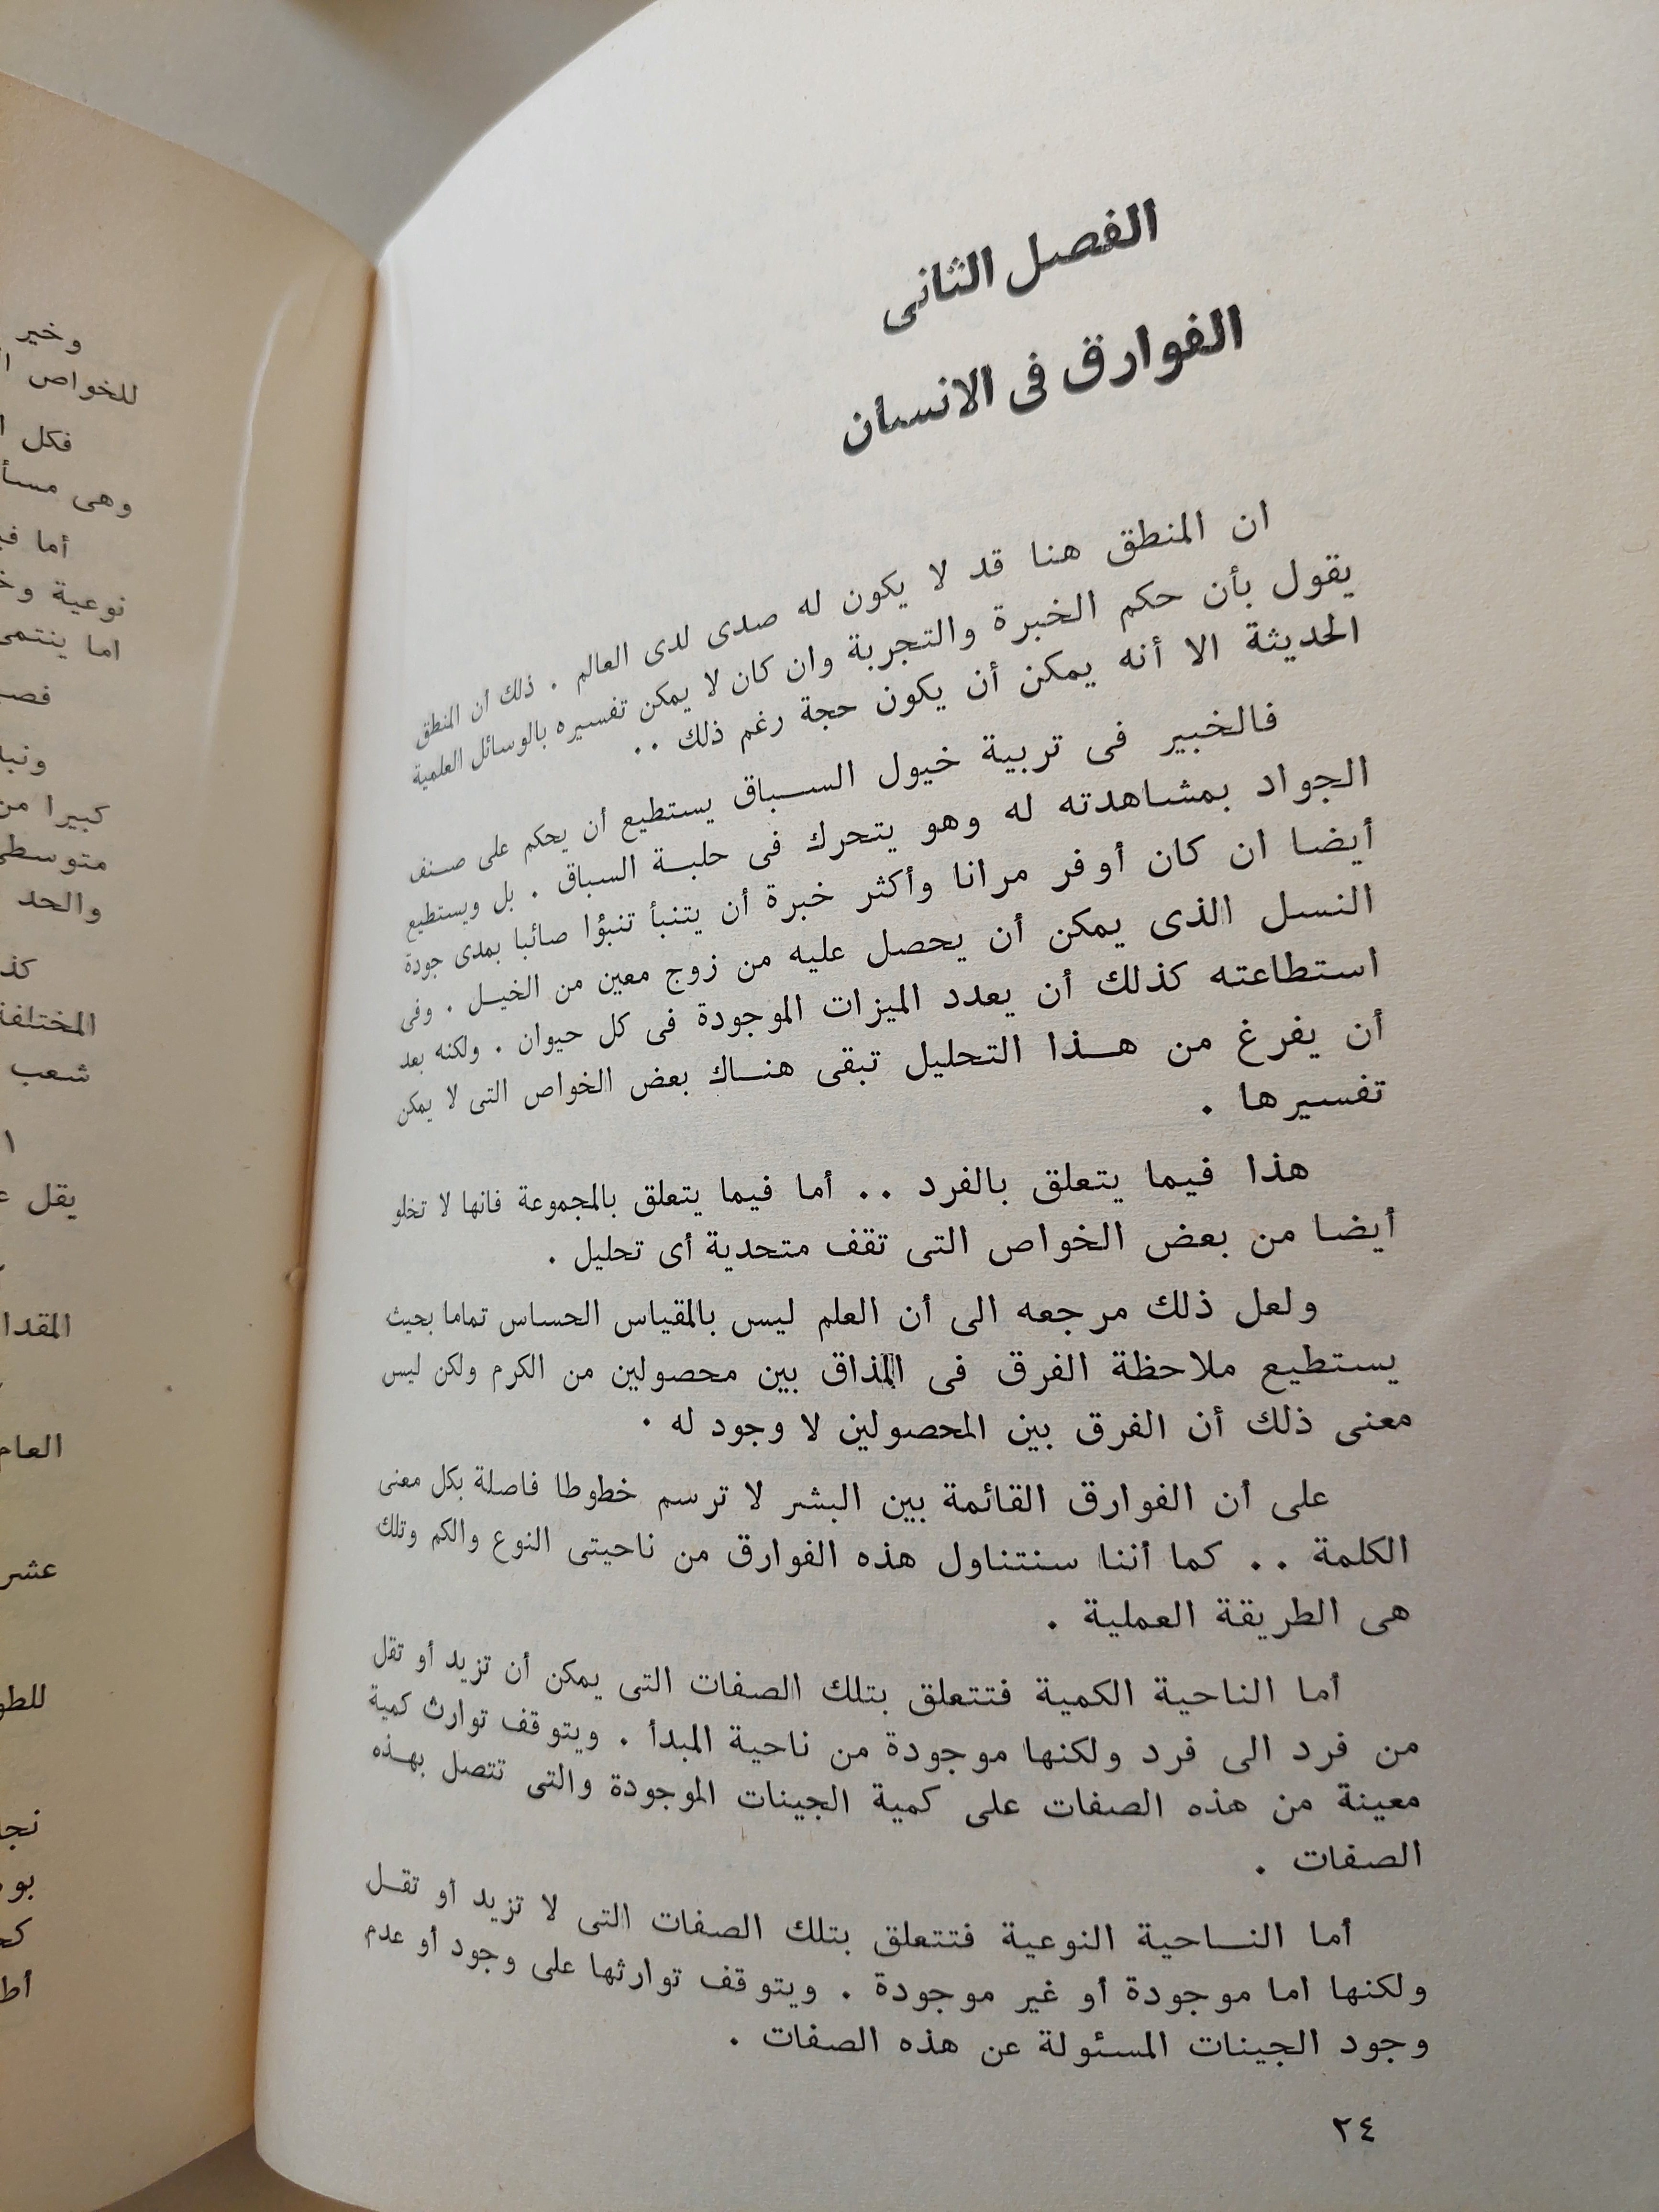 الفصل الثانى
الفوارق فى الانسان
ان المنطق هنا قد لا يكون له صدى لدى العالم . ذلك ان المنطق
يقول بأن حكم الخبرة والتجربة وان كان لا يمكن تفسيره بالوسائل العلمية
الحديثة الا أنه يمكن أن يكون حجة رغم ذلك ..
فالخبير فى تربية خيول السباق يستطيع أن يحكم على صنف
الجواد بمشاهدته له وهو يتحرك فى حلبة السباق . بل ويستطيع
أيضا ان كان أوفر مرانا وأكثر خبرة أن يتنبأ تنبؤا صائبا بمدى جودة
النسل الذى يمكن أن يحصل عليه من زوج معين من الخيل . وفى
استطاعته كذلك أن يعدد الميزات الموجودة فى كل حيوان . ولكنه بعد
أن يفرغ من هذا التحليل تبقى هناك بعض الخواص التى لا يمكن
تفسيرها .
هذا فيما يتعلق بالفرد .. أما فيما يتعلق بالمجموعة فانها لا تخلو
أيضا من بعض الخواص التى تقف متحدية أى تحليل .
ولعل ذلك مرجعه الى أن العلم ليس بالمقياس الحساس تماما بحيث
يستطيع ملاحظة الفرق فى المذاق بين محصولين من الكرم ولكن ليس
معنى ذلك أن الفرق بين المحصولين لا وجود له .
على أن الفوارق القائمة بين البشر لا ترسم خطوطا فاصلة بكل معنى
الكلمة .. كما أننا سنتناول هذه الفوارق من ناحيتى النوع والكم وتلك
هى الطريقة العملية .
أما الناحية الكمية فتتعلق بتلك الصفات التى يمكن أن تزيد أو تقل
من فرد الى فرد ولكنها موجودة من ناحية المبدأ . ويتوقف توارث كمية
معينة من هذه الصفات على كمية الجينات الموجودة والتى تتصل بهذه
الصفات .
أما الناحية النوعية فتتعلق بتلك الصفات التى لا تزيد أو تقل
ولكنها اما موجودة أو غير موجودة . ويتوقف توارثها على وجود أو عدم
وجود الجينات المسئولة عن هذه الصفات .
٢٤
وخير
للخواص
فكل
وهى
أما
نوعية
اما ينتمى
كبيرا من
والحد
المختلفة
شعب
يقل